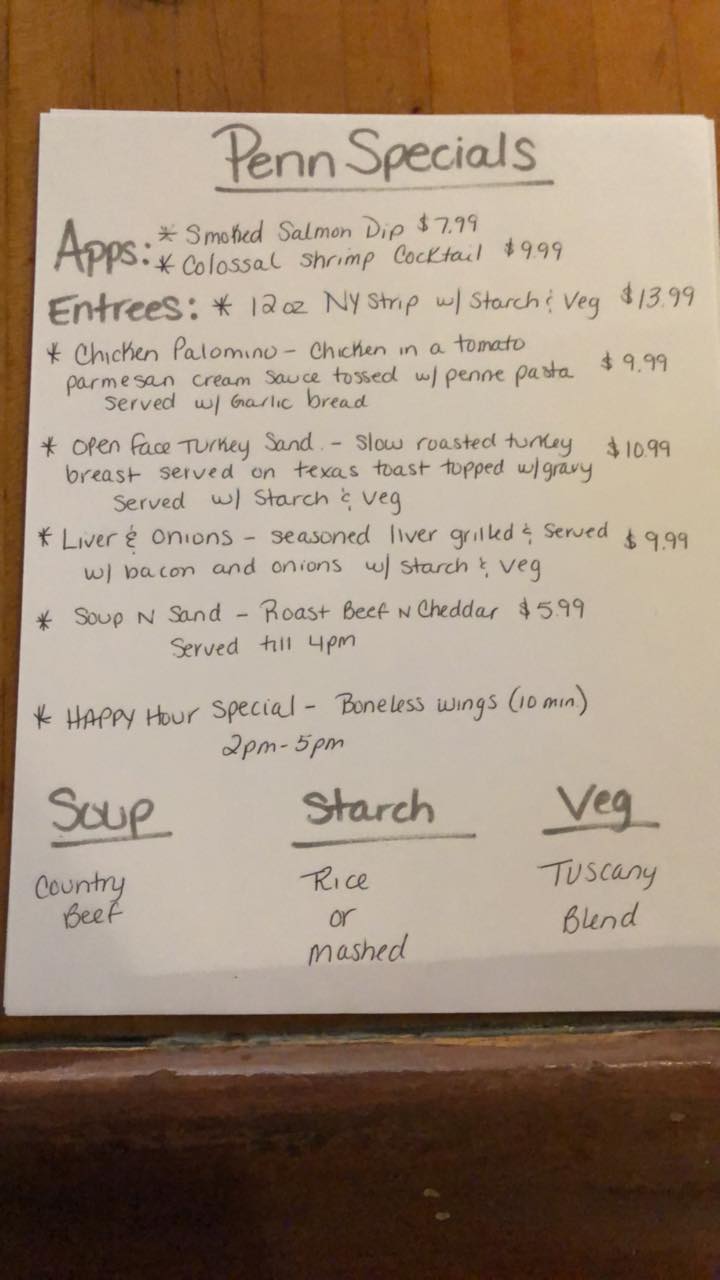 Penn Specials
Apps: * Smoked Salmon Dip $7.99
* Colossal Shrimp Cocktail $9.99
Entrees: * 12oz NY Strip w/ Starch & Veg $13.99
* Chicken Palomino - Chicken in a tomato
parmesan cream sauce tossed w/ penne pasta $9.99
served w/ Garlic bread
* Open Face Turkey Sand. - Slow roasted turkey $10.99
breast served on texas toast topped w/gravy
Served w/ Starch & Veg
* Liver & Onions - seasoned liver grilled & Served $9.99
w/ bacon and onions w/ starch & veg
* Soup N Sand - Roast Beef N Cheddar $5.99
Served till 4pm
* HAPPY Hour Special - Boneless wings (10 min.)
2pm-5pm
Soup Starch Veg
Country Rice Tuscany
Beef or Blend
mashed